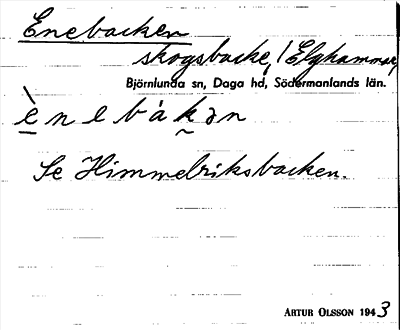 Enebacken
skogsbacke, (Elghammar)
Björnlunda sn, Daga hd, Södermanlands län.
è̱nebàk̰ən
Se Himmelriksbacken.
ARTUR OLSSON 1943